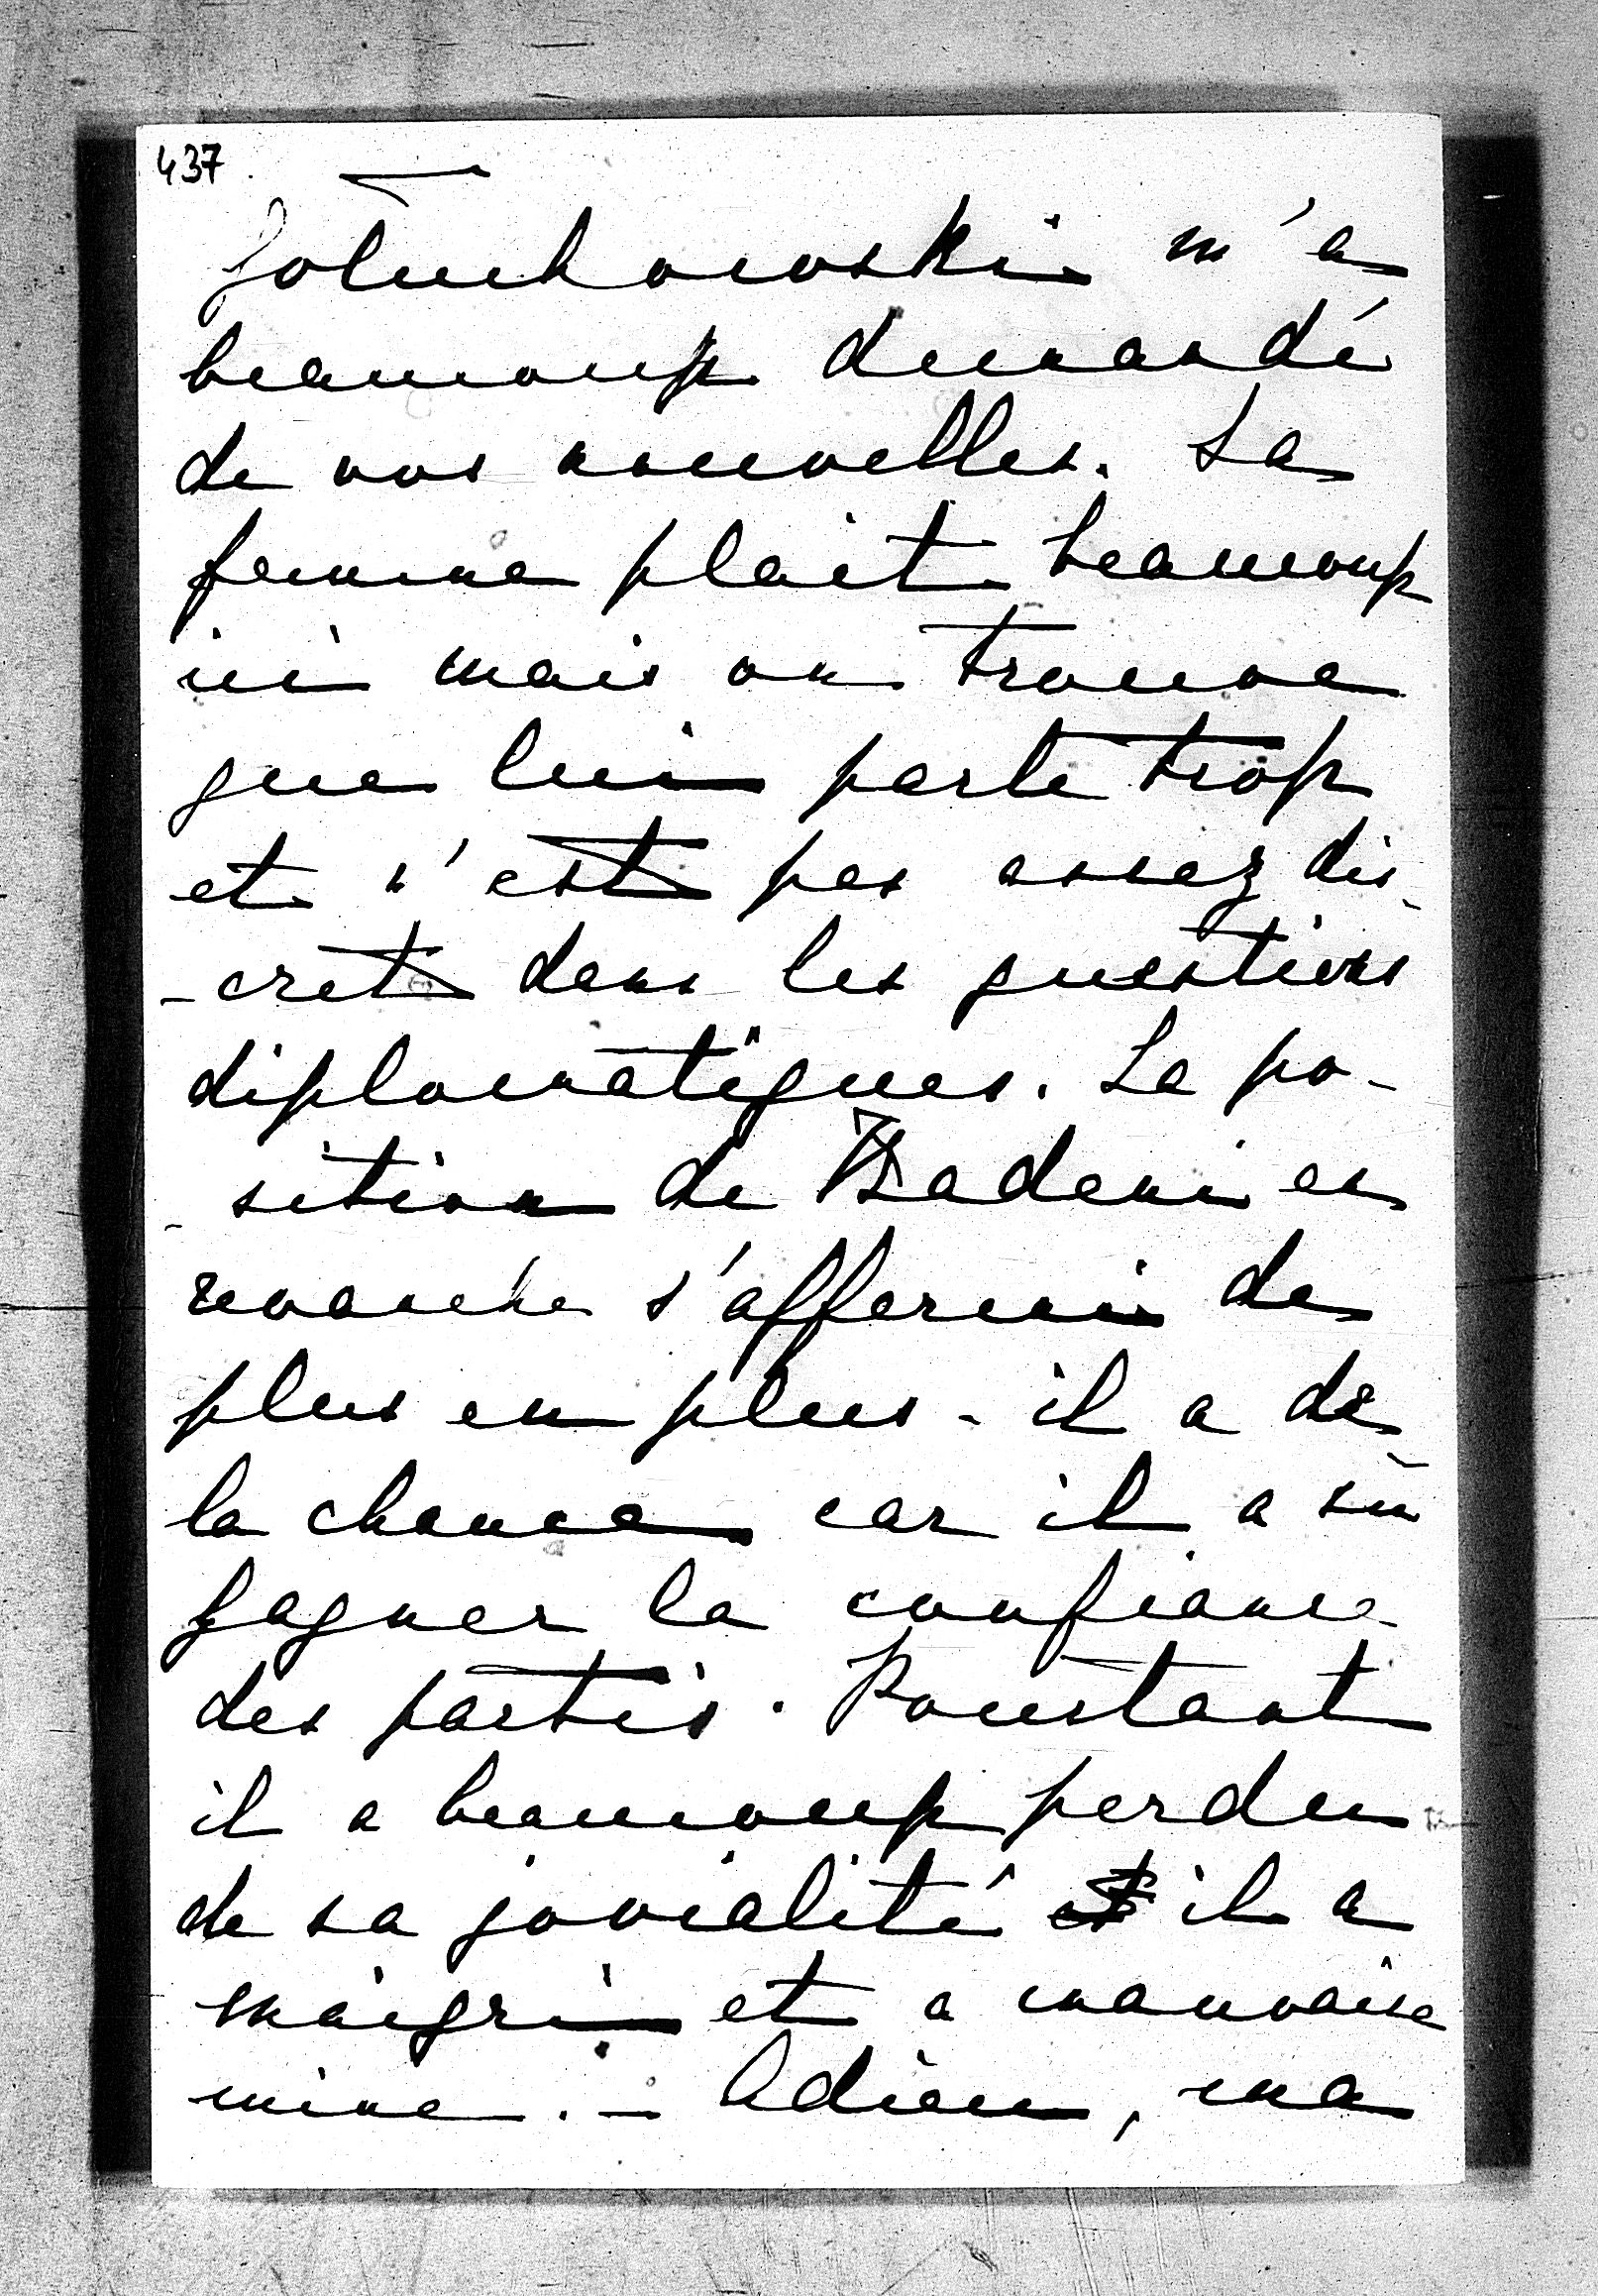 437
Gotuchowski m'a
beaucoup demandé
de vos nouvelles. Sa
femme plait beaucoup
ici mais on trouve
que lui parle trop
et n'est pas assez dis-
-cret dans les questions
diplomatiques. La po-
-sition de Badeni en
revanche s'affermi de
plus en plus - il a de
la chance car il a sû
gagner la confiance
des partis. Pourtant
il a beaucoup perdu
de sa jovialité il a
maigri et a mauvaise
mine. - Adieu, ma